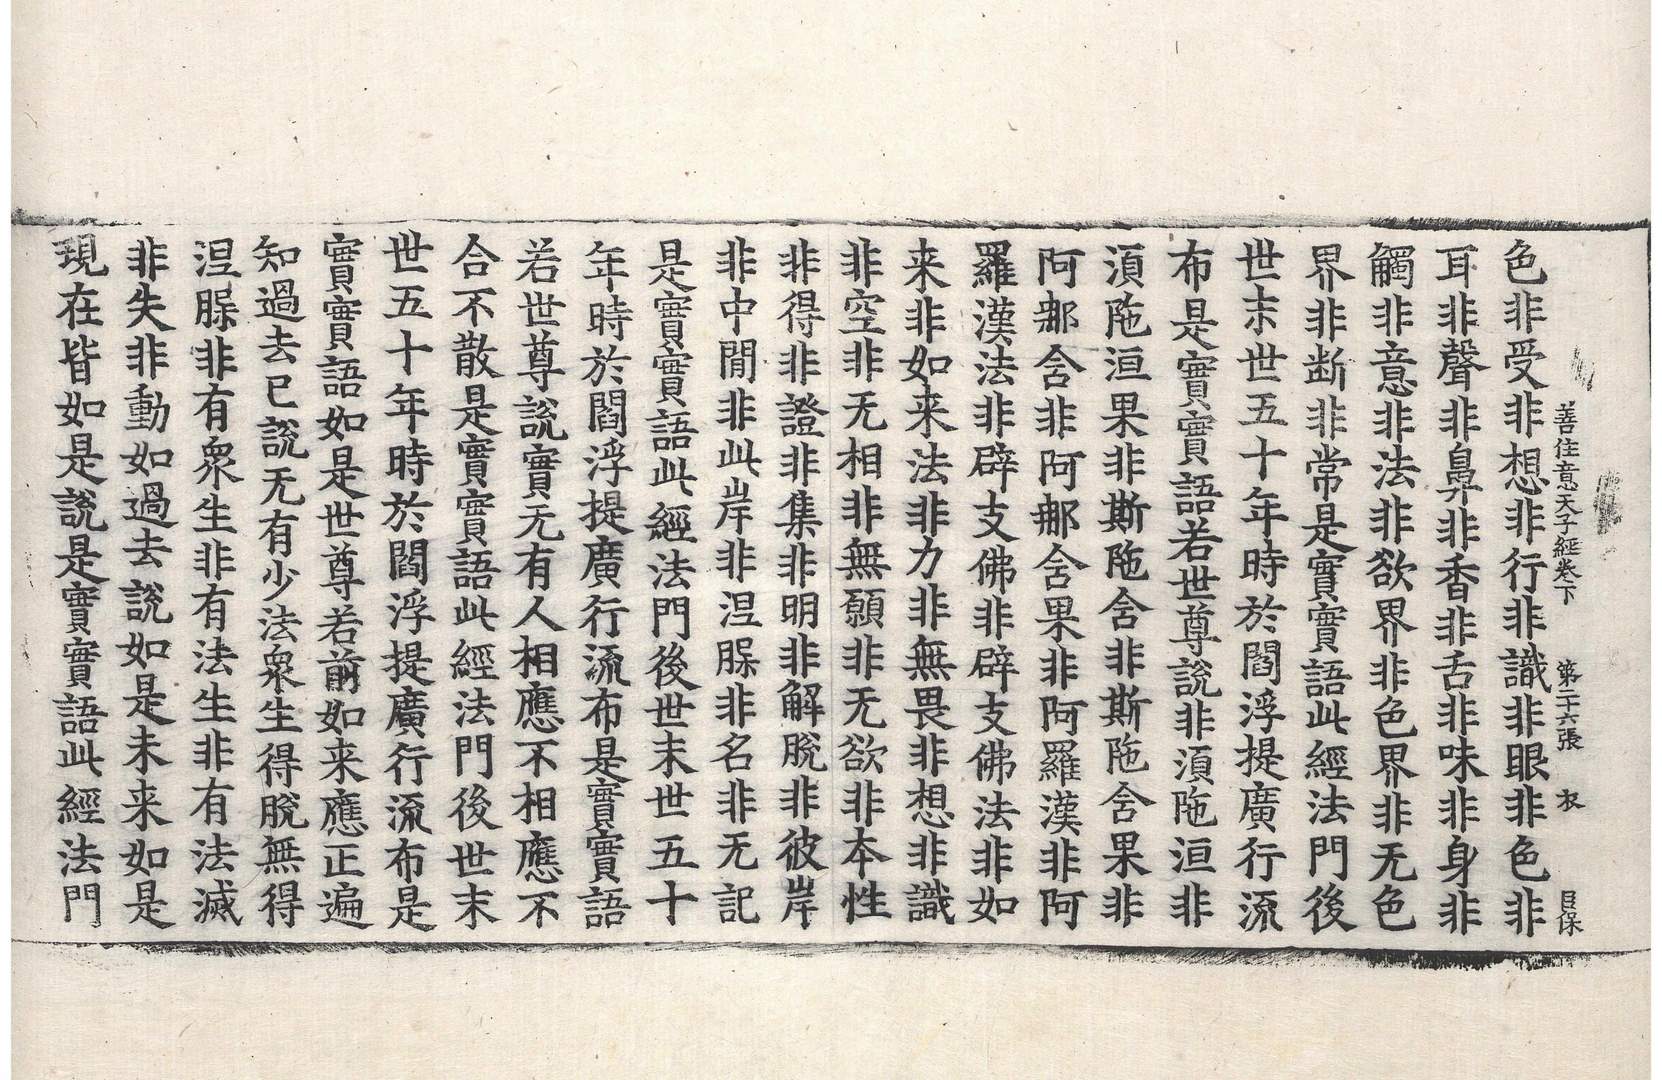 善住意天子經卷下 第二十六張 衣 目保
色非受非想非行非識非眼非色非
耳非聲非鼻非香非舌非味非身非
觸非意非法非欲界非色界非无色
界非断非常是實實語此經法門後
世末世五十年時於閻浮提廣行流
布是實實語若世尊說非湏陁洹非
湏陁洹果非斯陁含非斯陁含果非
阿那含非阿那含果非阿羅漢非阿
羅漢法非辟支佛非辟支佛法非如
来非如来法非力非無畏非想非識
非空非无相非無願非无欲非本性
非得非證非集非明非解脫非彼岸
非中閒非此岸非涅槃非名非无記
是實實語此經法門後世末世五十
年時於閻浮提廣行流布是實實語
若世尊說實无有人相應不相應不
合不散是實實語此經法門後世末
世五十年時於閻浮提廣行流布是
實實語如是世尊若前如来應正遍
知過去已說无有少法衆生得脫無得
涅槃非有衆生非有法生非有法滅
非失非動如過去說如是未来如是
現在皆如是說是實實語此經法門